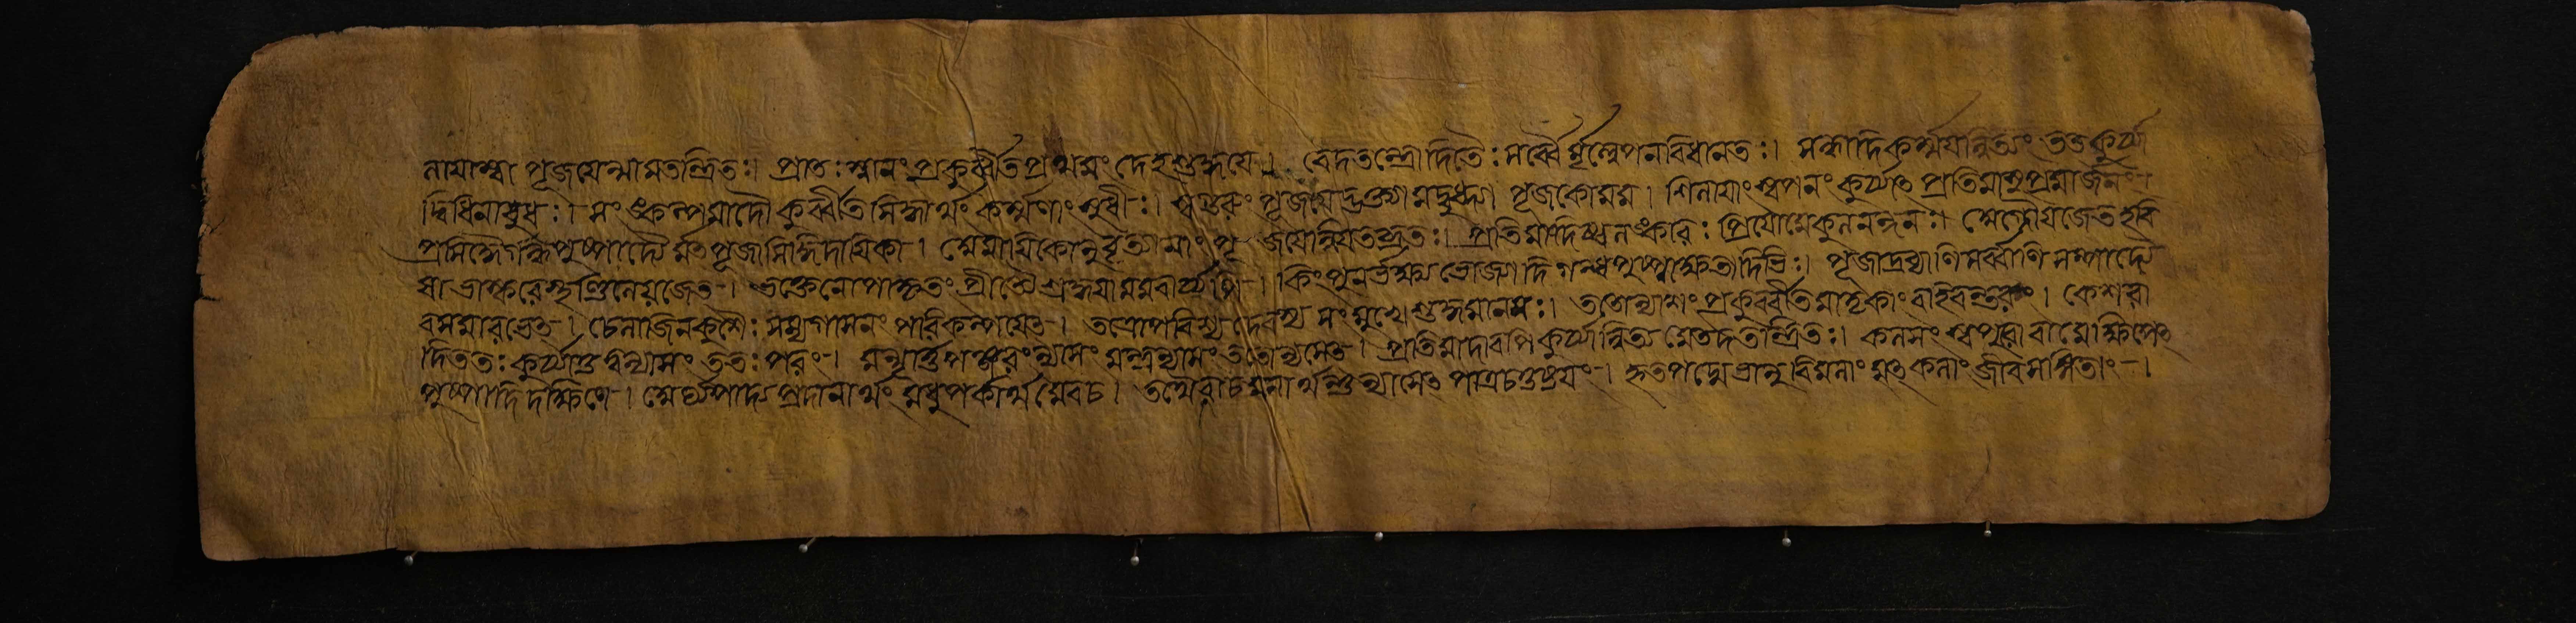 লাযাম্বা পূজযেন্মামতন্দ্রিতঃ। প্রাতঃস্নানং প্রকুর্ব্বীতপ্রথমং দেহশুদ্ধযে। বেদতন্ত্রোদিতৈঃ সর্ব্বৈর্মৃল্লেপনবিধানতঃ। সন্ধ্যাদিকর্ম্মযন্নিত্যং তত্তকুর্য্যা
দ্বিধিনাবুধঃ। সংঙ্কল্পমাদৌ কুর্ব্বীত সিদ্ধ্যর্থং কর্ম্মণাং সুধীঃ। স্বগুরুং পূজযেদ্ভক্ত্যা মদ্বুদ্ধ্যা পূজকোমম। শিলাযাং স্নপনং কুর্য্যাৎ প্রতিমাসুপ্রমার্জনং।
প্রসিদ্ধৈর্গন্ধপুষ্পাদ্যৈর্ম্মতপূজাসিদ্ধিদাযিকা। অমাযিকোনুবৃত্যামাং পূজযেন্নিযতব্রতঃ। প্রতিমাদিষ্বলঙ্কারঃ প্রিযোমেকুলনন্দনঃ। অগ্নৌযজেতহবি
ষাভাস্করেস্থণ্ডিলেযজেত। ভক্তেনোপাহৃতং প্রীত্যৈ শ্রদ্ধযামমবার্য্যপি। কিংপুনর্ভক্ষ্য ভোজ্যাদিগন্ধপুষ্পাক্ষতাদিভিঃ। পূজাদ্রব্যাণিসর্ব্বাণি সম্পাদ্যৈ
বংসমারভেত্। চেলাজিনকুশৈঃ সম্যগাসনং পারিকল্পযেত। তত্রোপবিশ্য দেবস্য সংমুখে শুদ্ধমানসঃ। ততোন্যাসং প্রকুরবর্বীতমাতৃকাং বাহিরন্তরং। কেশবা
দিততঃ কুর্য্যাত্তত্ত্বন্যাসং ততঃ পরং। মন্মূর্ত্তিপঞ্জরংন্যাসং মন্ত্রন্যাসং ততোন্যসেত। প্রতিমাদাবপিকুর্য্যান্নিত্যমেতদতন্দ্রিতঃ। কলসং স্বপুরো বামে ক্ষিপেৎ
পুষ্পাদিদক্ষিণে। অর্ঘ্যপাদ্যপ্রদানার্থং মধুপর্কার্থমেবচ। তথৈবাচমনার্থন্তু ন্যাসেৎ পাত্রচতুষ্টযং। হৃতপদ্মেভানুবিমলাং মৎকলাং জীবসংজ্ঞিতাং।